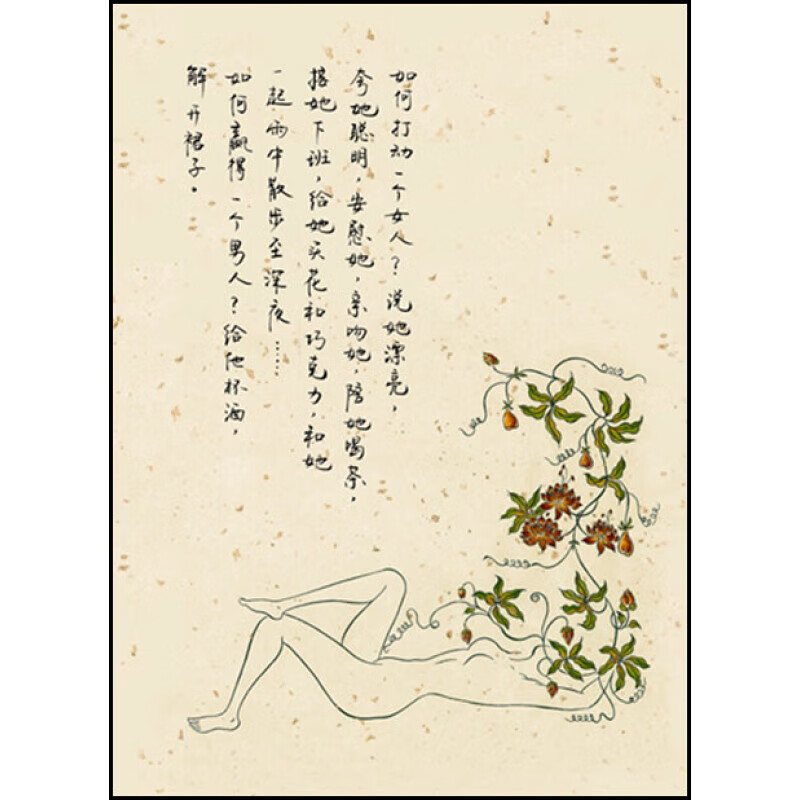 如何打动一个女人？说她漂亮，
夸她聪明，安慰她，亲吻她，陪她喝茶，
接她下班，给她买花和巧克力，和她
一起雨中散步至深夜……
如何赢得一个男人？给他杯酒，
解开裙子。